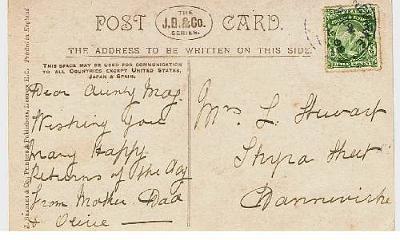 POST CARD.
THE
J.B.&Co.
SERIES.
THE ADDRESS TO BE WRITTEN ON THIS SIDE
THIS SPACE MAY BE USED FOR COMMUNICATION
TO ALL COUNTRIES EXCEPT UNITED STATES,
JAPAN & SPAIN.
Printed in England
Dear Aunty Mag.
Wishing you
many Happy
Returns of the day
from Mother Dad
&
Mrs L Stewart
Street
Dannevirke